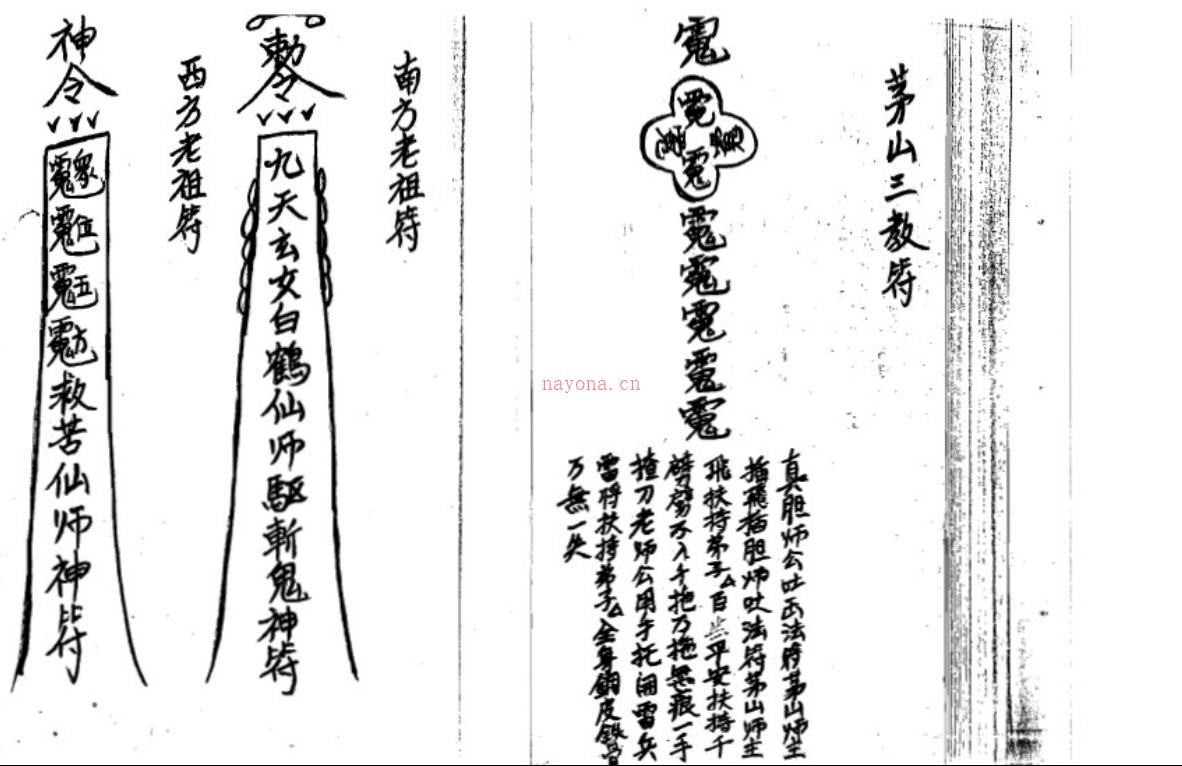 茅山三教符
真胆师公吐法符茅山师主
插飛插胆师吐法符茅山师主
飛扶持弟子△百平安扶持千
劈劈不入千拖万拖無痕一手
揸刀老师公用手托開雷兵
雷将扶持弟子△全身銅皮鉄骨
万無一失
南方老祖符
勅令
九天玄女白鶴仙师驅斬鬼神符
西方老祖符
神令
救苦仙师神符
nayona.cn